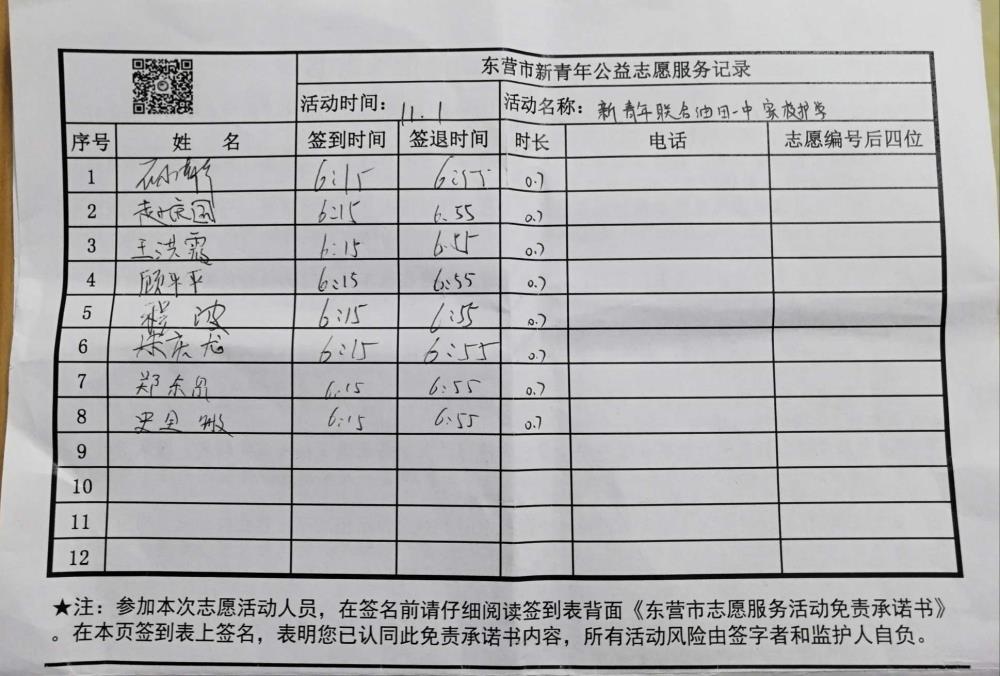 东营市新青年公益志愿服务记录
活动时间: 11.1 活动名称: 新青年联合油田一中实校护学
序号 姓 名 签到时间 签退时间 时长 电话 志愿编号后四位
1 6:15 6:55 0.7
2 赵庆国 6:15 6.55 0.7
3 王洪霞 6:15 6:55 0.7
4 顾平平 6:15 6:55 0.7
5 程 波 6:15 6:55 0.7
6 梁庆龙 6:15 6:55 0.7
7 郑东 6:15 6:55 0.7
8 史 敏 6:15 6:55 0.7
9
10
11
12
★注：参加本次志愿活动人员，在签名前请仔细阅读签到表背面《东营市志愿服务活动免责承诺书》
。在本页签到表上签名，表明您已认同此免责承诺书内容，所有活动风险由签字者和监护人自负。